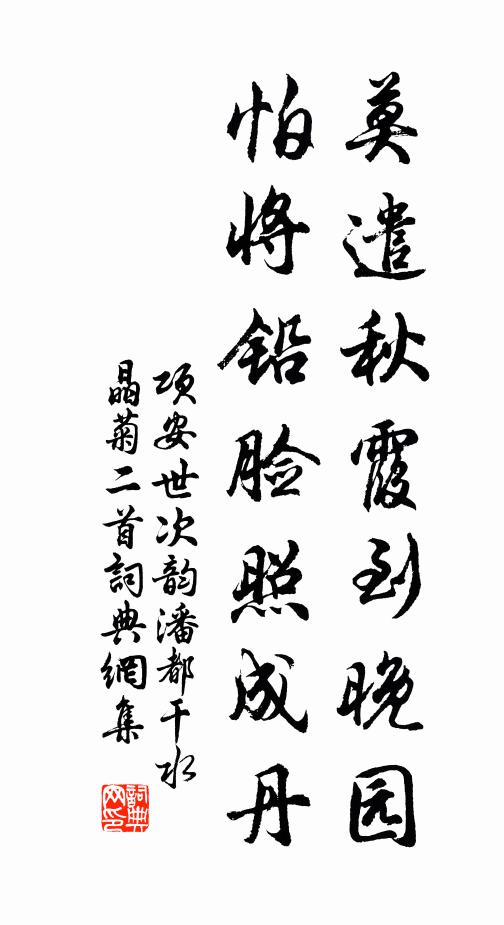 莫遣秋霞到晚园
怕将铅脸照成丹
项安世次韵潘都干水
晶菊二首詞典網集
詞典网印